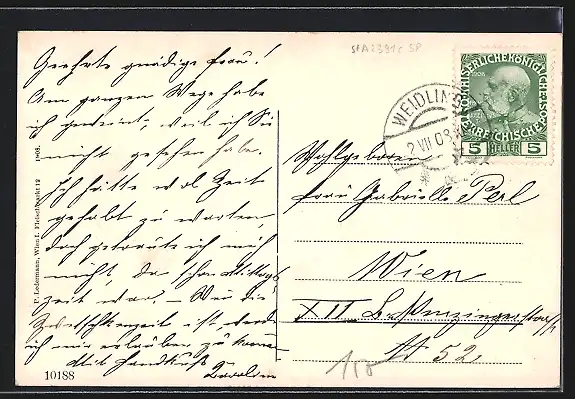 Geehrte gnädige Frau!
Am ganzen Wege habe
ich geweint, weil ich Sie
nicht gesehen habe.
Ich hätte wol Zeit
gehabt zu warten,
doch getraute ich mich
nicht, da schon Mittags
zeit war. – Wen die
ist, werd
ich mir erlauben zu kommen
Mit Handkuß
10188
P. Ledermann, Wien I. Fleischmarkt 12 1908.
WEIDLING
2 VII 08
KAISERLICHE KÖNIGLICHE ÖSTERREICHISCHE POST
1908
5 HELLER 5
Wohlgeboren
Frau Gabrielle Perl
Wien
XII
№ 52